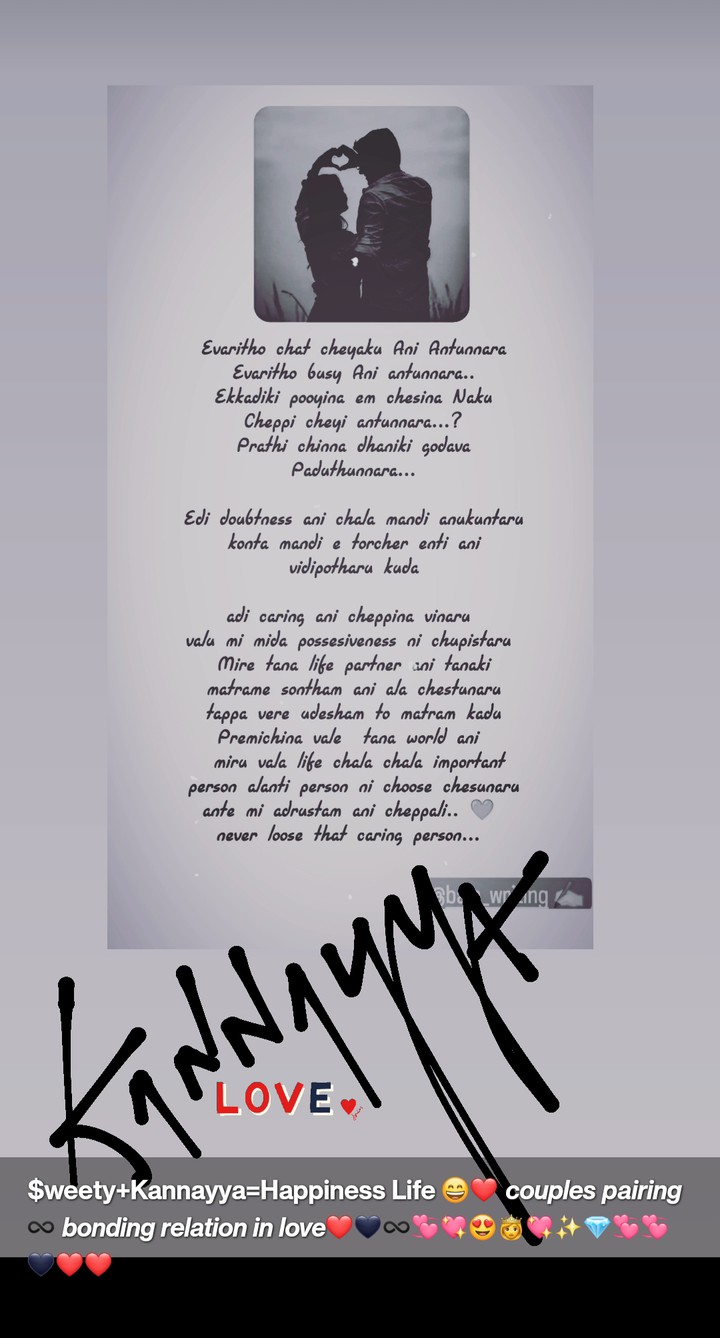 Evaritho chat cheyaku Ani Antunnara
Evaritho busy Ani antunnara..
Ekkadiki pooyina em chesina Naku
Cheppi cheyi antunnara...?
Prathi chinna dhaniki godava
Paduthunnara...
Edi doubtness ani chala mandi anukuntaru
konta mandi e torcher enti ani
vidipotharu kuda
adi caring ani cheppina vinaru
valu mi mida possesiveness ni chupistaru
Mire tana life partner ani tanaki
matrame sontham ani ala chestunaru
tappa vere udesham to matram kadu
Premichina vale tana world ani
miru vala life chala chala important
person alanti person ni choose chesunaru
ante mi adrustam ani cheppali.. 🩶
never loose that caring person...
KANNAYYA
LOVE
$weety+Kannayya=Happiness Life 😄❤️ couples pairing
∞ bonding relation in love❤️🖤∞💕💖😍👸💖✨💎💕💕
🖤❤️❤️